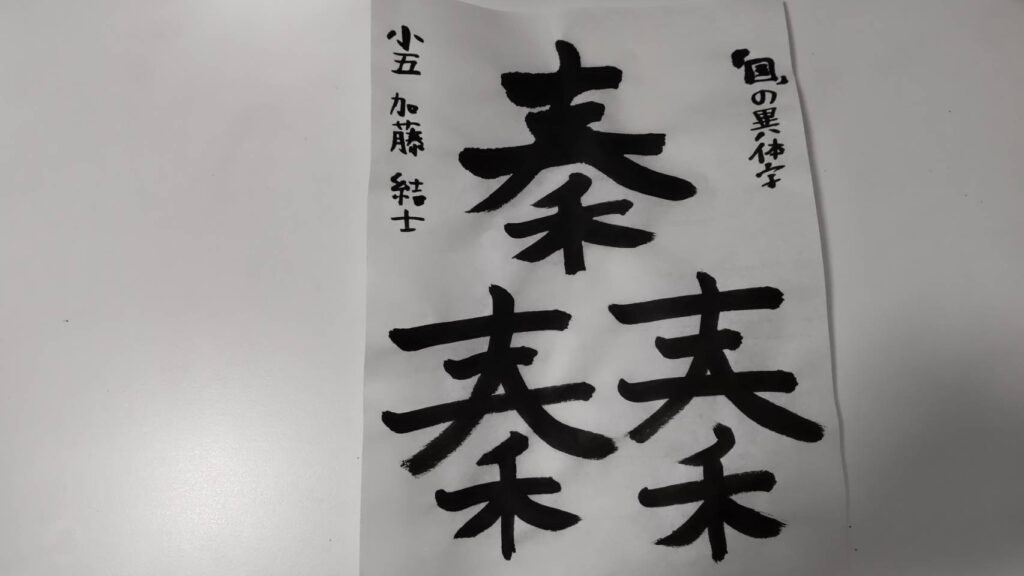 「国」の異体字
秦
秦秦
小五 加藤 結士